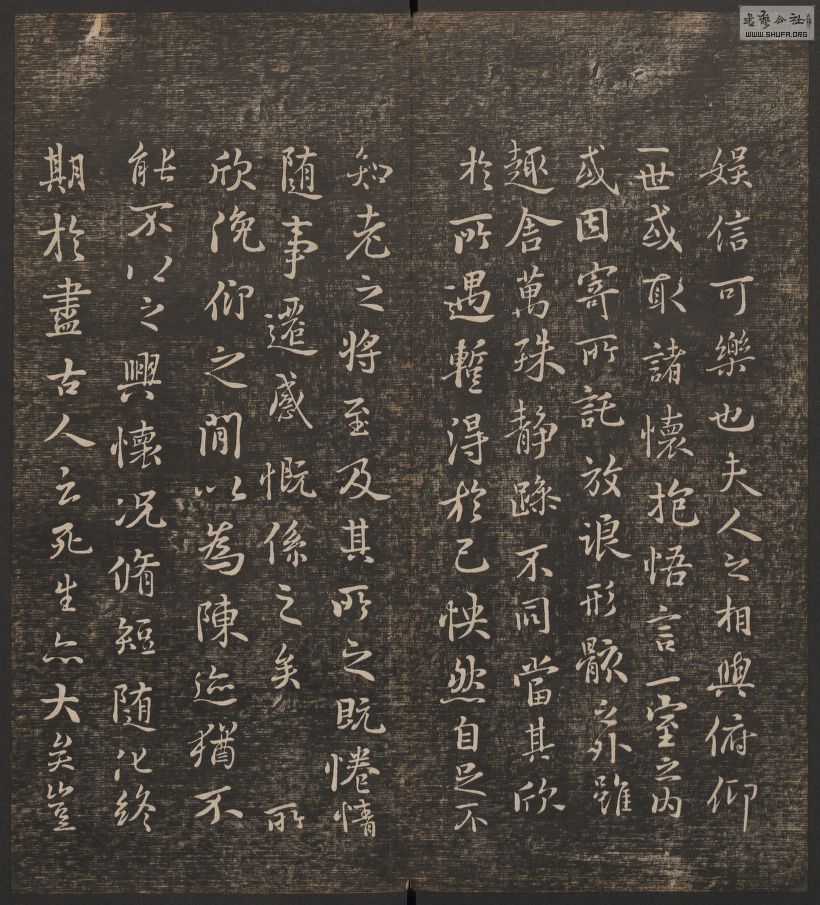 娱信可樂也夫人之相與俯仰
一世或取諸懷抱悟言一室之内
或因寄所託放浪形骸之外雖
趣舍萬殊静躁不同當其欣
於所遇蹔得於己怏然自足不
知老之将至及其所之既惓情
随事遷感慨係之矣 所
欣俛仰之間以為陳迹猶不
能不以之興懷况脩短随化終
期於盡古人云死生亦大矣豈
WWW.SHUFA.ORG